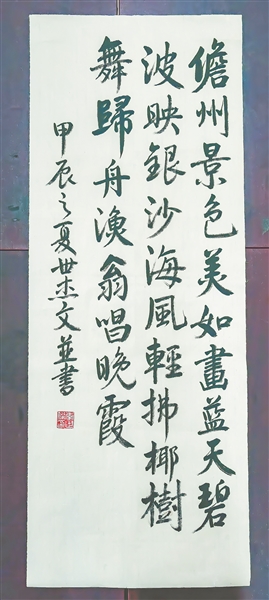 儋州景色美如畫藍天碧
波映銀沙海風輕拂椰樹
舞歸舟漁翁唱晚霞
甲辰之夏世杰文並書